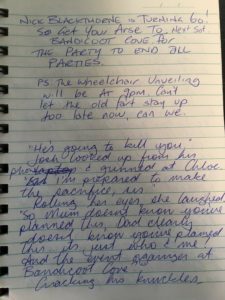 NICK BLACKTHORNE is TURNING 60!
So GET YOUR ARSE TO NEXT Sat.
BANDICOOT COVE FOR
THE PARTY TO END ALL
PARTIES.
PS. THE WHEELCHAIR UNVEILING
will be AT 9pm. Can't
let the old fart stay up
too late now, can we.
"He's going to kill you."
Josh looked up from his
& grinned at Chloe.
"But I'm prepared to make
this sacrifice, sis."
Rolling her eyes, she laughed.
"So Mum doesn't know you've
planned this, Dad clearly
doesn't know you've planned
this. Is just who & me?
And the event organiser at
Bandicoot Cove."
Cracking his knuckles,